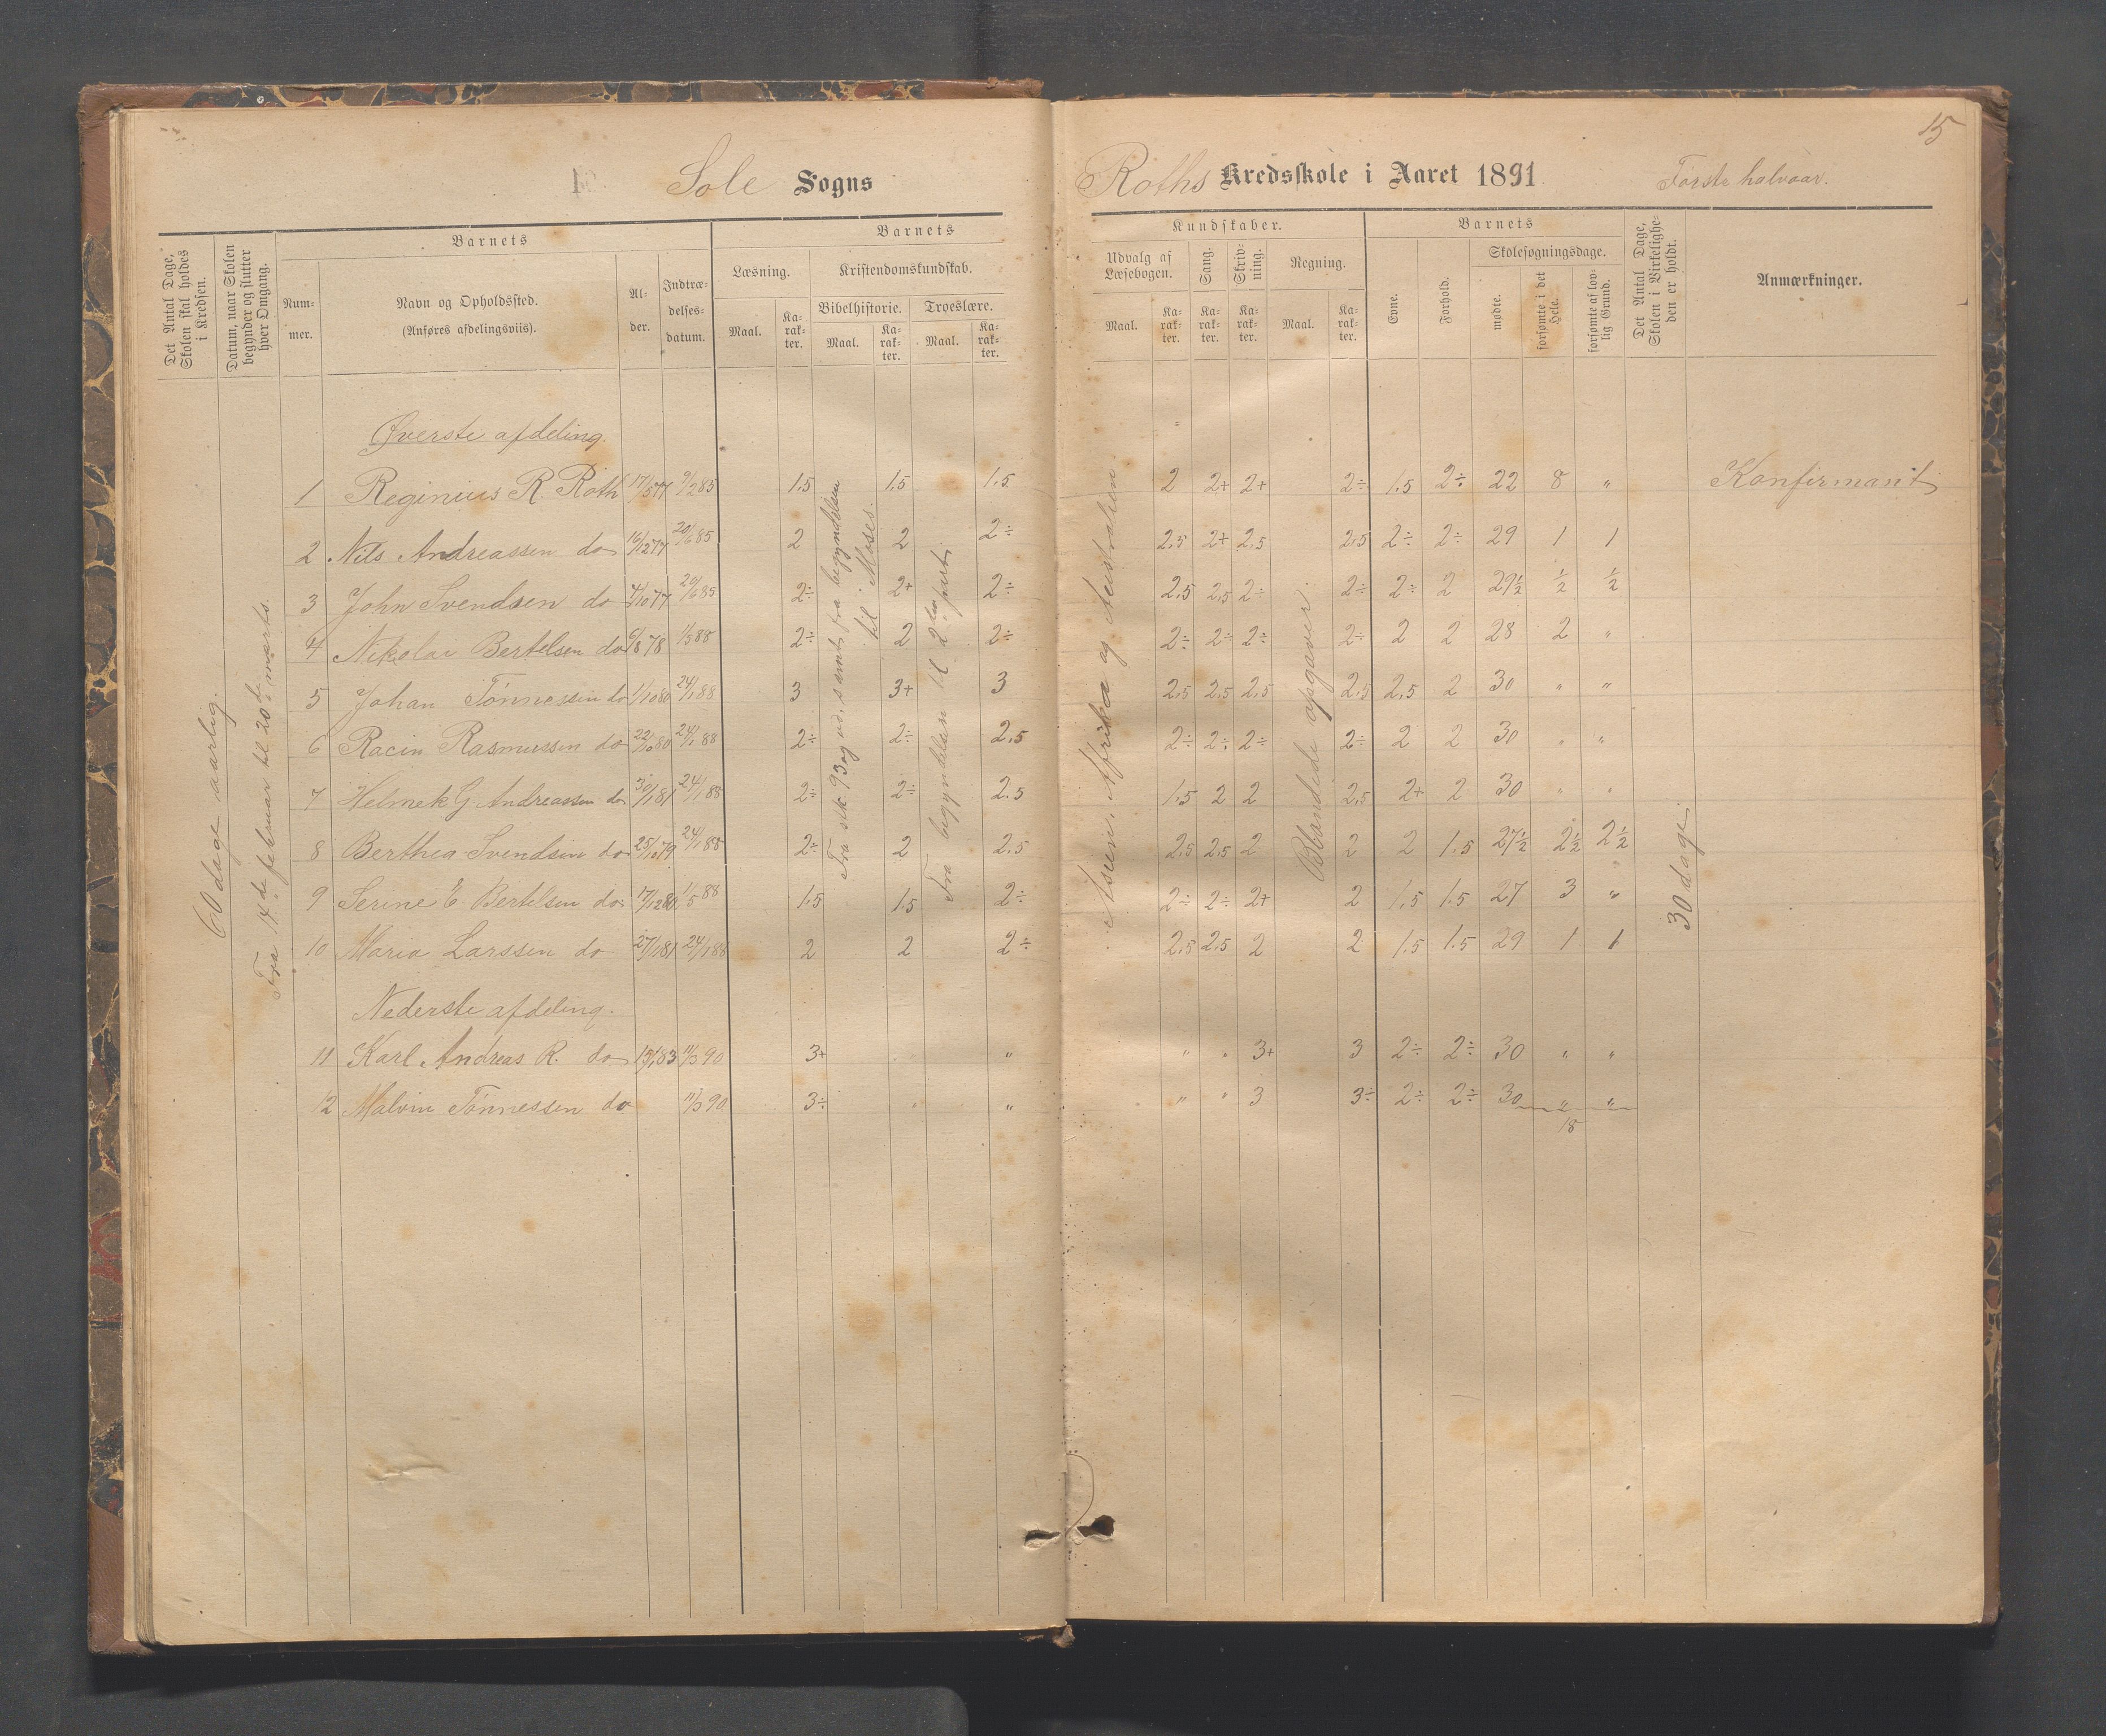 15
Sole Sogns Roths Kredsskole i Aaret 1891 Første halvaar.
Det Antal Dage, Skolen skal holdes i Kredsen.
Datum, naar Skolen begynder og slutter hver Omgang.
Barnets
Nummer.
Navn og Opholdssted.
(Anføres afdelingsviis).
Alder.
Indtrædelsesdatum.
Barnets Kundskaber.
Læsning.
Maal.
Karakter.
Kristendomskundskab.
Bibelhistorie.
Maal.
Karakter.
Troeslære.
Maal.
Karakter.
Udvalg af Læsebogen.
Maal.
Karakter.
Sang.
Karakter.
Skrivning.
Karakter.
Regning.
Maal.
Karakter.
Barnets
Evne.
Forhold.
Skolesøgningsdage.
mødte.
forsømte i det Hele.
forsømte af lovlig Grund.
Det Antal Dage, Skolen i Virkeligheden er holdt.
Anmærkninger.
60 dage aarlig.
Fra 14de februar til 20de marts.
Fra stk. 93 og ud, samt fra begyndelsen til Moses.
Fra begyndelsen til 2den part.
Asien, Afrika og Australien
Blandede opgaver.
30 dage.
Øverste afdeling.
1 Reginius R. Roth 17/5 77 9/2 85 1.5 1.5 1.5 2 2+ 2+ 2÷ 1.5 2÷ 22 8 " Konfirmant
2 Nils Andreassen do 16/12 77 20/6 85 2 2 2÷ 2.5 2+ 2.5 2.5 2÷ 2÷ 29 1 1
3 John Svendsen do 4/10 77 20/6 85 2÷ 2+ 2÷ 2.5 2.5 2÷ 2÷ 2÷ 2 29½ ½ ½
4 Nikolai Bertelsen do 6/8 78 1/5 88 2÷ 2 2÷ 2÷ 2÷ 2÷ 2÷ 2 2 28 2 "
5 Johan Tönnessen do 1/10 80 24/1 88 3 3+ 3 2.5 2.5 2.5 2.5 2.5 2 30 " "
6 Racin Rasmussen do 22/10 80 24/1 88 2÷ 2÷ 2.5 2÷ 2÷ 2÷ 2÷ 2 2 30 " "
7 Helmek G. Andreassen do 30/1 81 24/1 88 2÷ 2÷ 2.5 1.5 2 2 2.5 2+ 2 30 " "
8 Berthea Svendsen do 25/10 79 24/1 88 2÷ 2 2.5 2.5 2.5 2 2 2 1.5 27½ 2½ 2½
9 Serine E. Bertelsen do 17/12 80 1/5 88 1.5 1.5 2÷ 2÷ 2÷ 2+ 2 1.5 1.5 27 3 "
10 Maria Larssen do 27/1 81 24/1 88 2 2 2÷ 2.5 2.5 2 2 1.5 1.5 29 1 1
Nederste afdeling.
11 Karl Andreas R. do 15/1 83 11/3 90 3+ " " " 3+ 3 2÷ 2÷ 30 " "
12 Malvin Tönnessen do 11/3 90 3÷ " " " 3 3÷ 2÷ 2÷ 30 " "
18